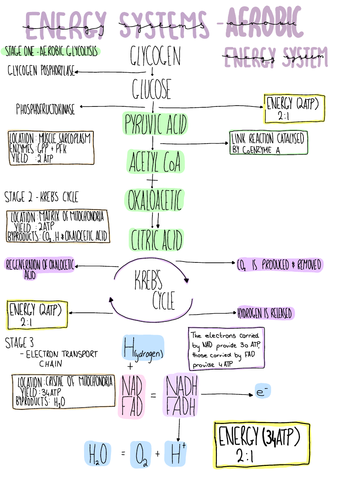 ENERGY SYSTEMS - AEROBIC
ENERGY SYSTEM
STAGE ONE - AEROBIC GLYCOLYSIS
GLYCOGEN
GLYCOGEN PHOSPHORYLASE
GLUCOSE
PHOSPHOFRUCTOKINASE
ENERGY (2ATP)
2:1
PYRUVIC ACID
LOCATION: MUSCLE SARCOPLASM
ENZYMES GPP + PFK
YIELD : 2 ATP
LINK REACTION CATALYSED
BY COENZYME A
ACETYL COA
+
STAGE 2 - KREB'S CYCLE
OXALOACETIC
LOCATION: MATRIX OF MITOCHONDRIA
YIELD : 2ATP
BYPRODUCTS: CO2, H & OXALOETIC ACID
CITRIC ACID
REGENERATION OF OXALOETIC
ACID
CO2 IS PRODUCED & REMOVED
KREB'S
CYCLE
ENERGY (2ATP)
2:1
HYDROGEN IS RELEASED
STAGE 3
- ELECTRON TRANSPORT
CHAIN
H(hydrogen)
+
The electrons carried
by NAD provide 30 ATP
those carried by FAD
provide 4 ATP
LOCATION: CRISTAE OF MITOCHONDRIA
YIELD: 34ATP
BYPRODUCTS: H2O
NAD = NADH
FAD FADH
e-
H2O = O2 + H+
ENERGY (34ATP)
2:1